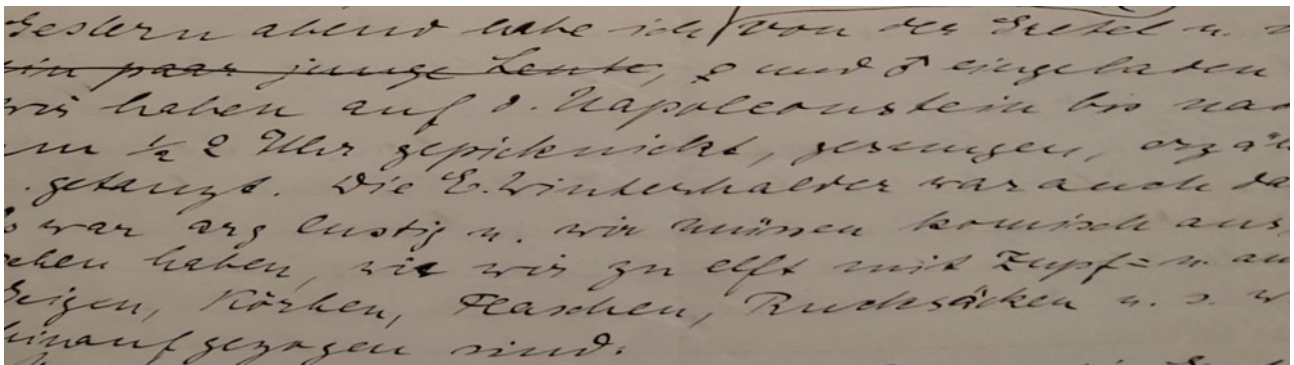 Gestern abend habe ich von der Gretel u.
ein paar junge Leute, ♀ und ♂ eingeladen
wir haben auf d. Napoleonstein bis nac
um ½ 2 Uhr gepicknickt, gesungen, erzä
getanzt. Die E. Winterhalder war auch da
s war arg lustig u. wir müssen komisch aus
ehen haben, wie wir zu elft mit Zupf= u. an
Geigen, Körben, Flaschen, Rucksäcken u. s. w
hinaufgezogen sind.